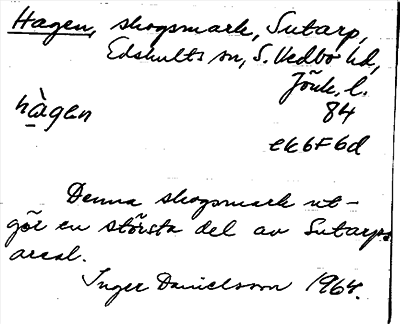 Hagen, skogsmark, Sutarp,
Edshults sn, S. Vedbo hd,
Jönk. l.
hàgen
84
ek6F6d
Denna skogsmark ut-
gör en största del av Sutarps
areal.
Inger Danielsson 1964.